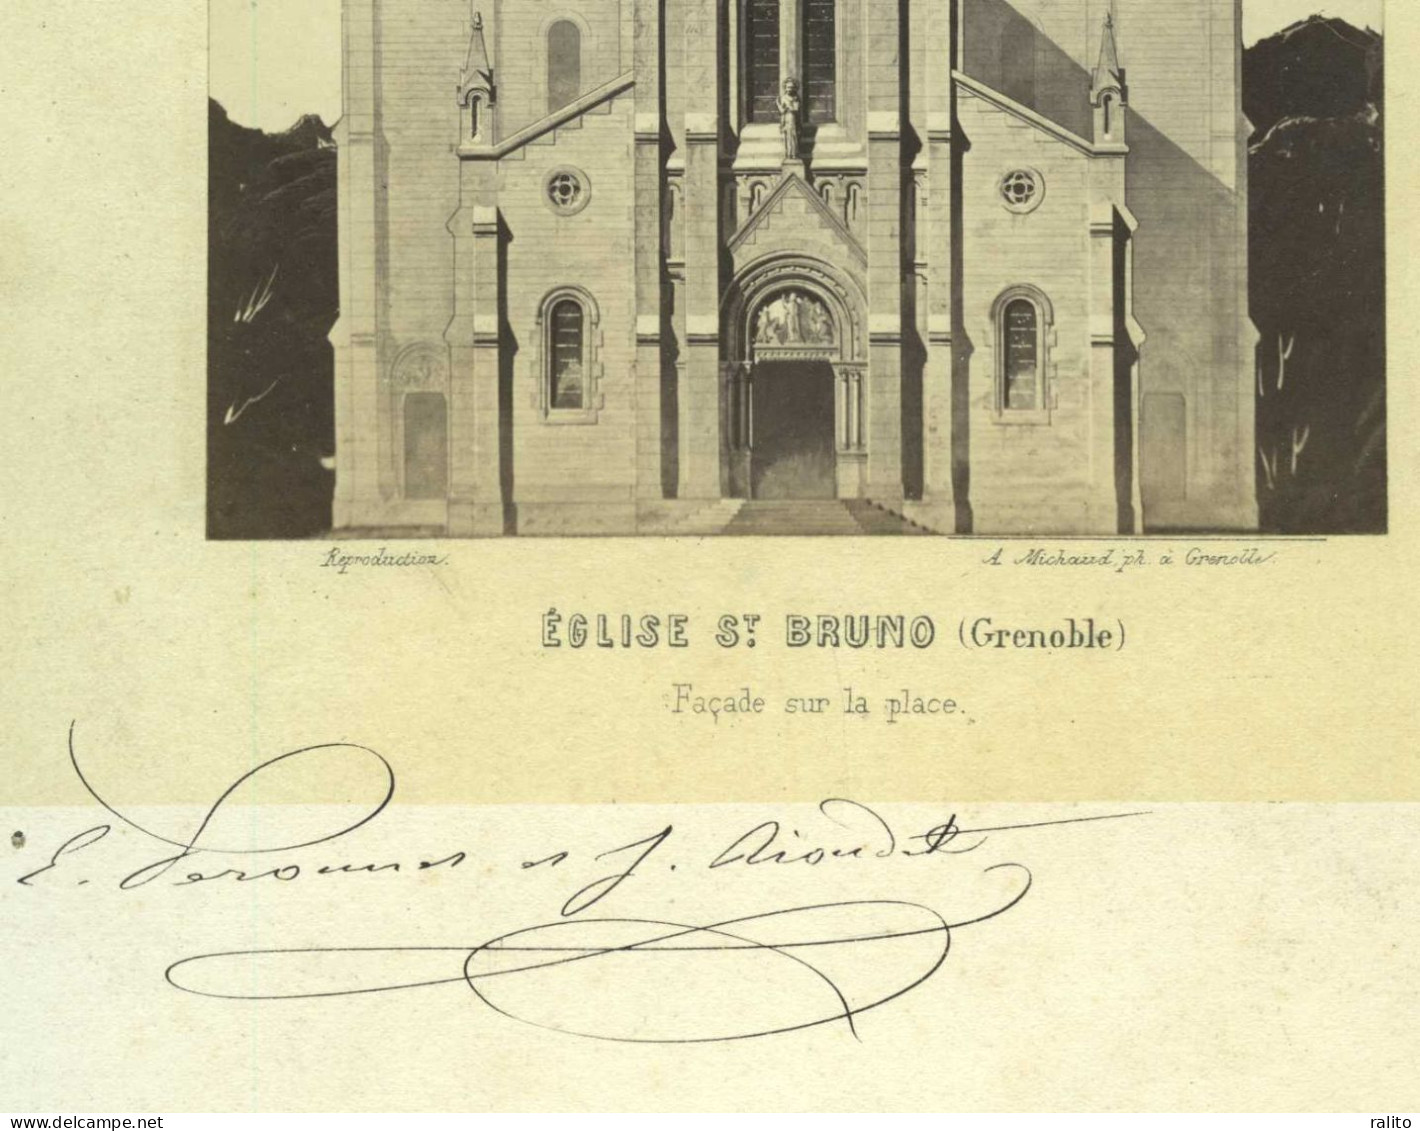 Reproduction.
A. Michaud, ph. à Grenoble.
ÉGLISE ST. BRUNO (Grenoble)
Façade sur la place.
E. Peronnet et J. Rioudet
delcampe.net
ralito